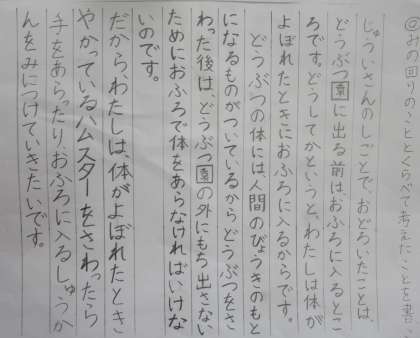 @みの回りのこととくらべて考えたことを書
じゅういさんのしごとで、おどろいたことは、
どうぶつ園に出る前は、おふろに入るとこ
ろです。どうしてかというと、わたしは体が
よぼれたときにおふろに入るからです。
どうぶつの体には、人間のびょうきのもと
になるものがついているからどうぶつをさ
わった後は、どうぶつ園の外にもち出さない
ためにおふろで体をあらなければいけな
いのです。
だからわたしは、体がよぼれたとき
やかっているハムスターをさわったら
手をあらったり、おふろに入るしゅうか
んをみにつけていきたいです。